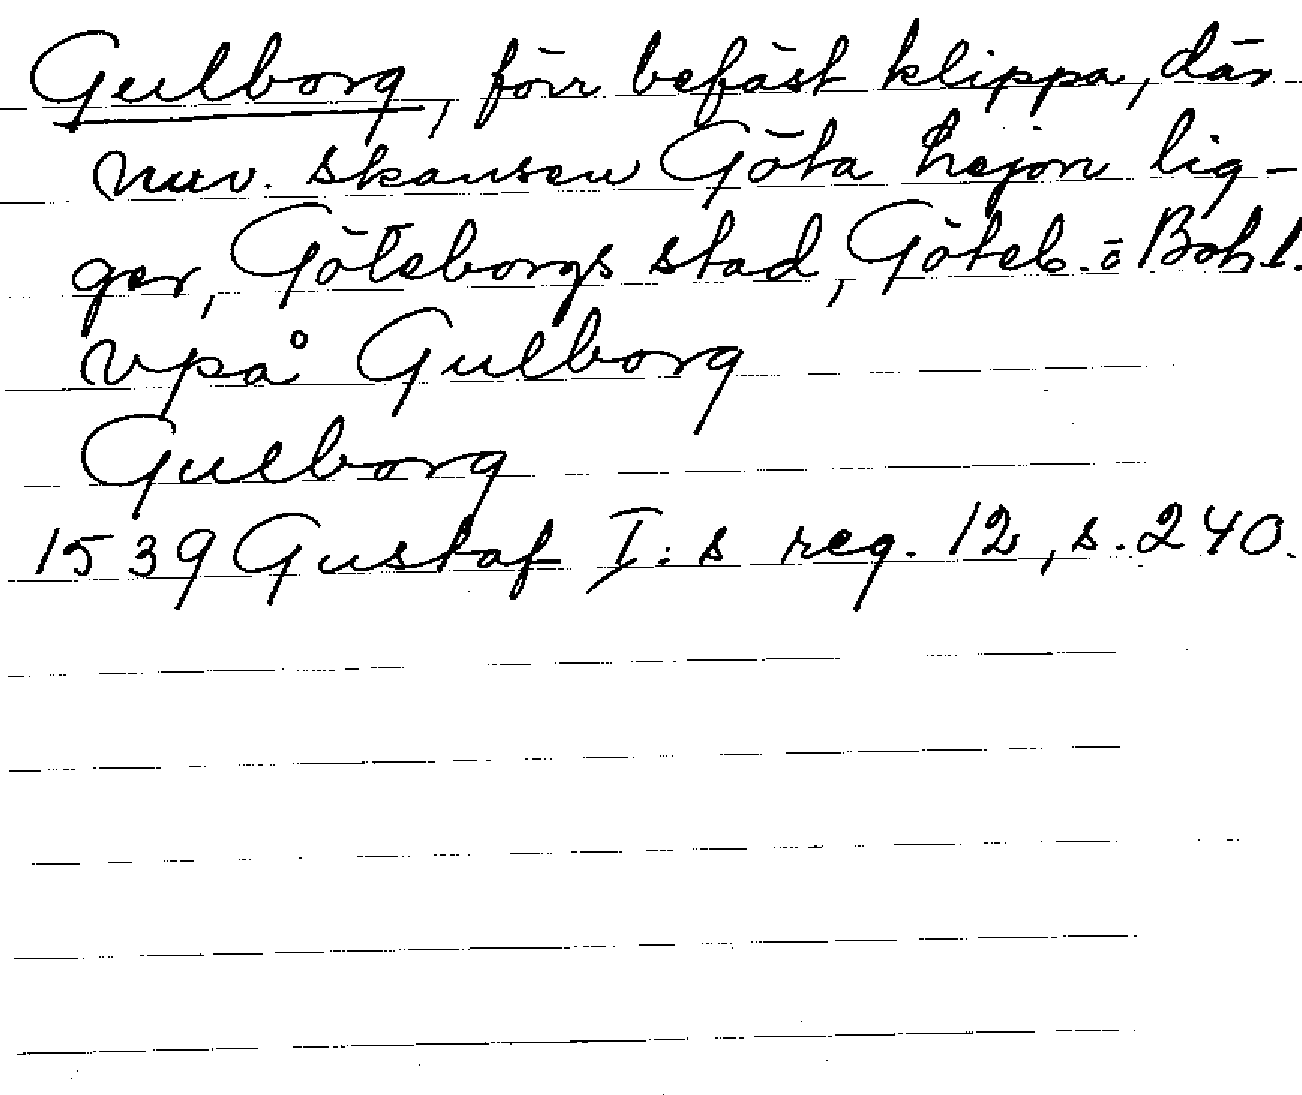 Gulborg, förr befäst klippa, där
nuv. skansen Göta lejon lig-
ger, Göteborgs stad, Göteb. o Bohl.
vpå Gulborg
Gulborg
1539 Gustaf I:s reg. 12, s. 240.